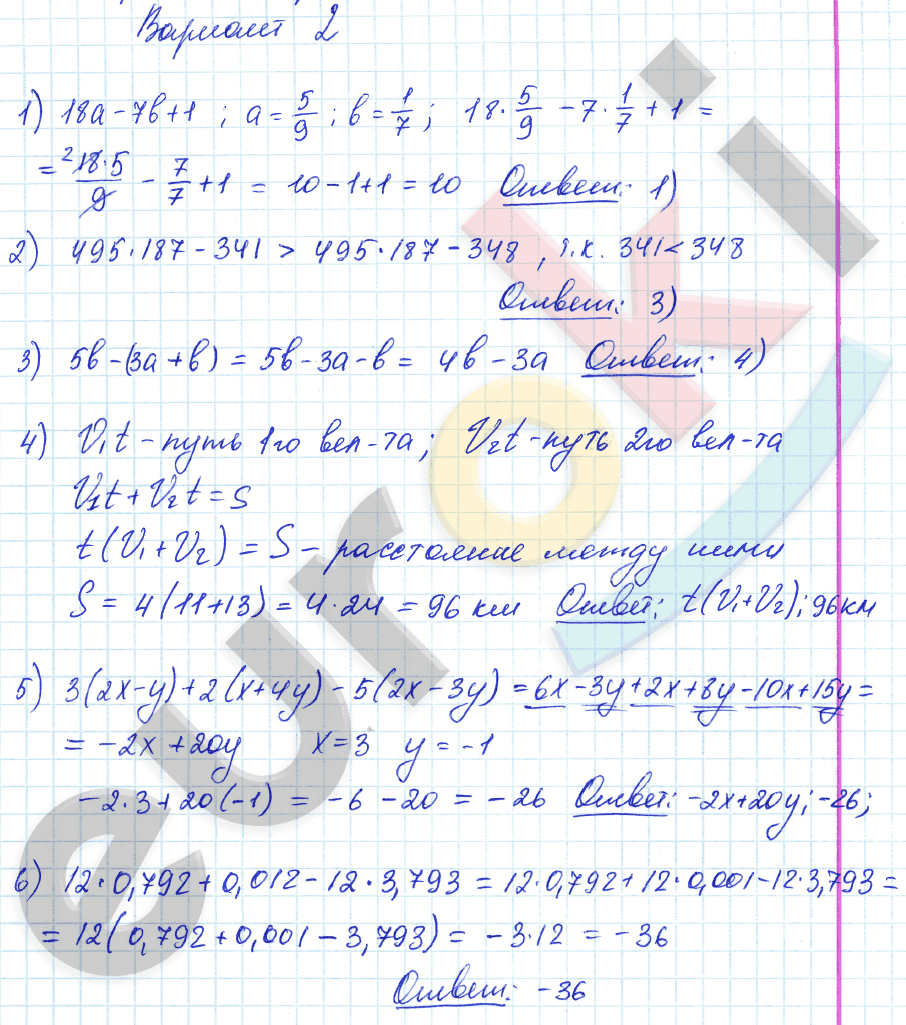 Вариант 2
1) 18a - 7b + 1 ; a = 5/9 ; b = 1/7 ; 18 · 5/9 - 7 · 1/7 + 1 =
= ²18·5/9 - 7/7 + 1 = 10 - 1 + 1 = 10 Ответ: 1)
2) 495·187 - 341 > 495·187 - 348, т.к. 341 < 348
Ответ: 3)
3) 5b - (3a + b) = 5b - 3a - b = 4b - 3a Ответ: 4)
4) V₁t - путь 1го вел-та; V₂t - путь 2го вел-та
V₁t + V₂t = S
t(V₁ + V₂) = S - расстояние между ними
S = 4(11+13) = 4·24 = 96 км Ответ: t(V₁+V₂); 96км
5) 3(2x-y) + 2(x+4y) - 5(2x-3y) = 6x - 3y + 2x + 8y - 10x + 15y =
= -2x + 20y x = 3 y = -1
-2·3 + 20(-1) = -6 - 20 = -26 Ответ: -2x+20y; -26;
6) 12·0,792 + 0,012 - 12·3,793 = 12·0,792 + 12·0,001 - 12·3,793 =
= 12(0,792 + 0,001 - 3,793) = -3·12 = -36
Ответ: -36
euroki